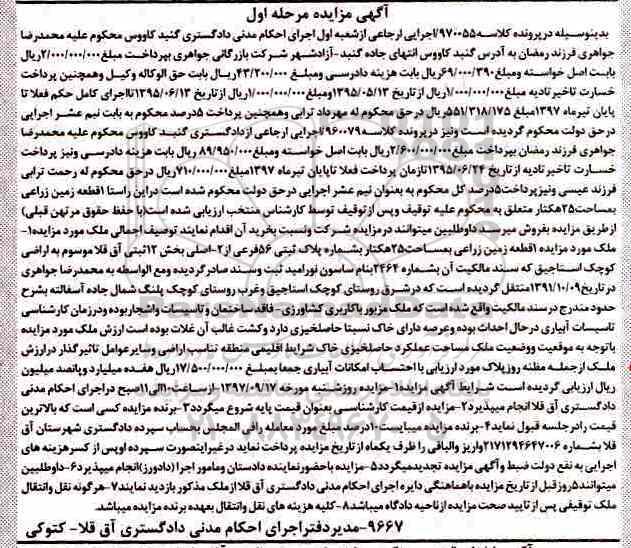 آگهی مزایده مرحله اول
بدینوسیله درپرونده کلاسه۹۷۰۰۵۵/اجرایی ارجاعی ازشعبه اول اجرای احکام مدنی دادگستری گنبد کاووس محکوم علیه محمدرضا
جواهری فرزند رمضان به آدرس گنبد کاووس انتهای جاده گنبد-آزادشهر شرکت بازرگانی جواهری بپرداخت مبلغ۲/۰۰۰/۰۰۰/۰۰۰ریال
بابت اصل خواسته ومبلغ۶۹/۰۰۰/۳۹۰ریال بابت هزینه دادرسی ومبلغ ۴۳/۲۰۰/۰۰۰ریـال بابت حق الوکاله وکیل وهمچنین پرداخت
خسارت تاخیر تادیه مبلغ ۱/۰۰۰/۰۰۰/۰۰۰ریال از تاریخ ۱۳۹۵/۰۵/۱۳ومبلغ۱/۰۰۰/۰۰۰/۰۰۰ریال از تاریخ ۱۳۹۵/۰۶/۱۳تااجرای کامل حکم فعلا تا
پایان تیرماه ۱۳۹۷مبلغ ۵۵۱/۳۱۸/۱۷۵ریال درحق محکوم له مهرداد ترابی وهمچنین پرداخت ۵درصد محکوم به بابت نیم عشر اجرایی
درحق دولت محکوم گردیده است ونیز درپرونده کلاسه۹۶۰۰۷۹۸اجرایی ارجاعی ازدادگستری گنبد کاووس محکوم علیه محمدرضا
جواهری فرزند رمضان بپرداخت مبلغ۲/۶۰۰/۰۰۰/۰۰۰ریال بابت اصل خواسته ومبلغ ۸۹/۹۵۰/۰۰۰ ریال بابت هزینه دادرسی ونیز پرداخت
خسارت تاخیر تادیه از تاریخ ۱۳۹۵/۰۶/۲۴تازمان پرداخت فعلا تاپایان تیرماه ۱۳۹۷مبلغ۷۱۰/۰۰۰/۰۰۰ریال درحق محکوم له رحمت ترابی
فرزند عیسی ونیزپرداخت۵درصد کل محکوم به بعنوان نیم عشر اجرایی درحق دولت محکوم شده است دراین راستا ۱قطعه زمین زراعی
بمساحت۲۵هکتار متعلق به محکوم علیه توقیف وپس ازتوقیف توسط کارشناس منتخب ارزیابی شده است(با حفظ حقوق مرتهن قبلی)
از طریق مزایده بفروش میرسد داوطلبین میتوانند درمزایده شرکت ونسبت بخرید آن اقدام نمایند توصیف اجمالی ملک مورد مزایده۱-
ملک مورد مزایده ۱قطعه زمین زراعی بمساحت۲۵هکتار بشماره پلاک ثبتی ۵۶فرعی از۲-اصلی بخش ۱۳ثبتی آق قلا موسوم به اراضی
کوچک استاجیق که سند مالکیت آن بشماره ۲۴۶۴بنام ساسون نورامید ثبت وسند صادرگردیده ومع الواسطه به محمدرضا جواهری
درتاریخ۱۳۹۱/۱۰/۰۹منتقل گردیده است که درشرق روستای کوچک استاجیق وغرب روستای کوچک پلنگ شمال جاده آسفالته بشرح
حدود مندرج درسند مالکیت واقع شده است که ملک مزبور باکاربری کشاورزی- فاقد ساختمان وتاسیسات واشجاربوده ودرزمان کارشناسی
تاسیسات آبیاری درحال احداث بوده وعرصه دارای خاک نسبتا حاصلخیزی دارد وکشت غالب آن غلات بوده است ارزش ملک مورد مزایده
باتوجه به موقعیت ووضعیت ملک مساحت عملکرد حاصلخیزی خاک شرایط اقلیمی منطقه تناسب اراضی وسایرعوامل تاثیر گذار درارزش
ملک ازجمله مظنه روزپلاک مورد ارزیابی با احتساب امکانات آبیاری جمعا بمبلغ ۱۷/۵۰۰/۰۰۰/۰۰۰ریال هفده میلیارد وپانصد میلیون
ریال ارزیابی گردیده است شرایط آگهی مزایده۱-مزایده روزشنبه مورخه ۱۳۹۷/۰۹/۱۷-ازساعت۱۰الی۱۱صبح دراجرای احکام مدنی
دادگستری آق قلا انجام میپذیرد۲-مزایده ازقیمت کارشناسی بعنوان قیمت پایه شروع میگردد۳-برنده مزایده کسی است که بالاترین
قیمت رادرجلسه قبول نماید۴-برنده مزایده میبایست۱۰درصد مبلغ مورد معامله رافی المجلس بحساب سپرده دادگستری شهرستان آق
قلا بشماره ۲۱۷۱۲۹۴۶۴۷۰۰۶واریز والباقی را ظرف یکماه از تاریخ مزایده پرداخت نماید درغیراینصورت سپرده اوپس از کسرهزینه های
اجرایی به نفع دولت ضبط وآگهی مزایده تجدیدمیگردد۵-مزایده باحضورنماینده دادستان ومامور اجرا (دادورز)انجام میپذیرد۶-داوطلبین
میتوانند۵روزقبل از تاریخ مزایده باهماهنگی دایره اجرای احکام مدنی دادگستری آق قلا از ملک مذکور بازدید نمایند۷-هرگونه نقل وانتقال
ملک توقیفی پس از تایید صحت مزایده ازناحیه دادگاه میباشد۸-کلیه هزینه های نقل وانتقال بعهده برنده مزایده میباشد.
۹۶۶۷-مدیردفتراجرای احکام مدنی دادگستری آق قلا- کتوکی